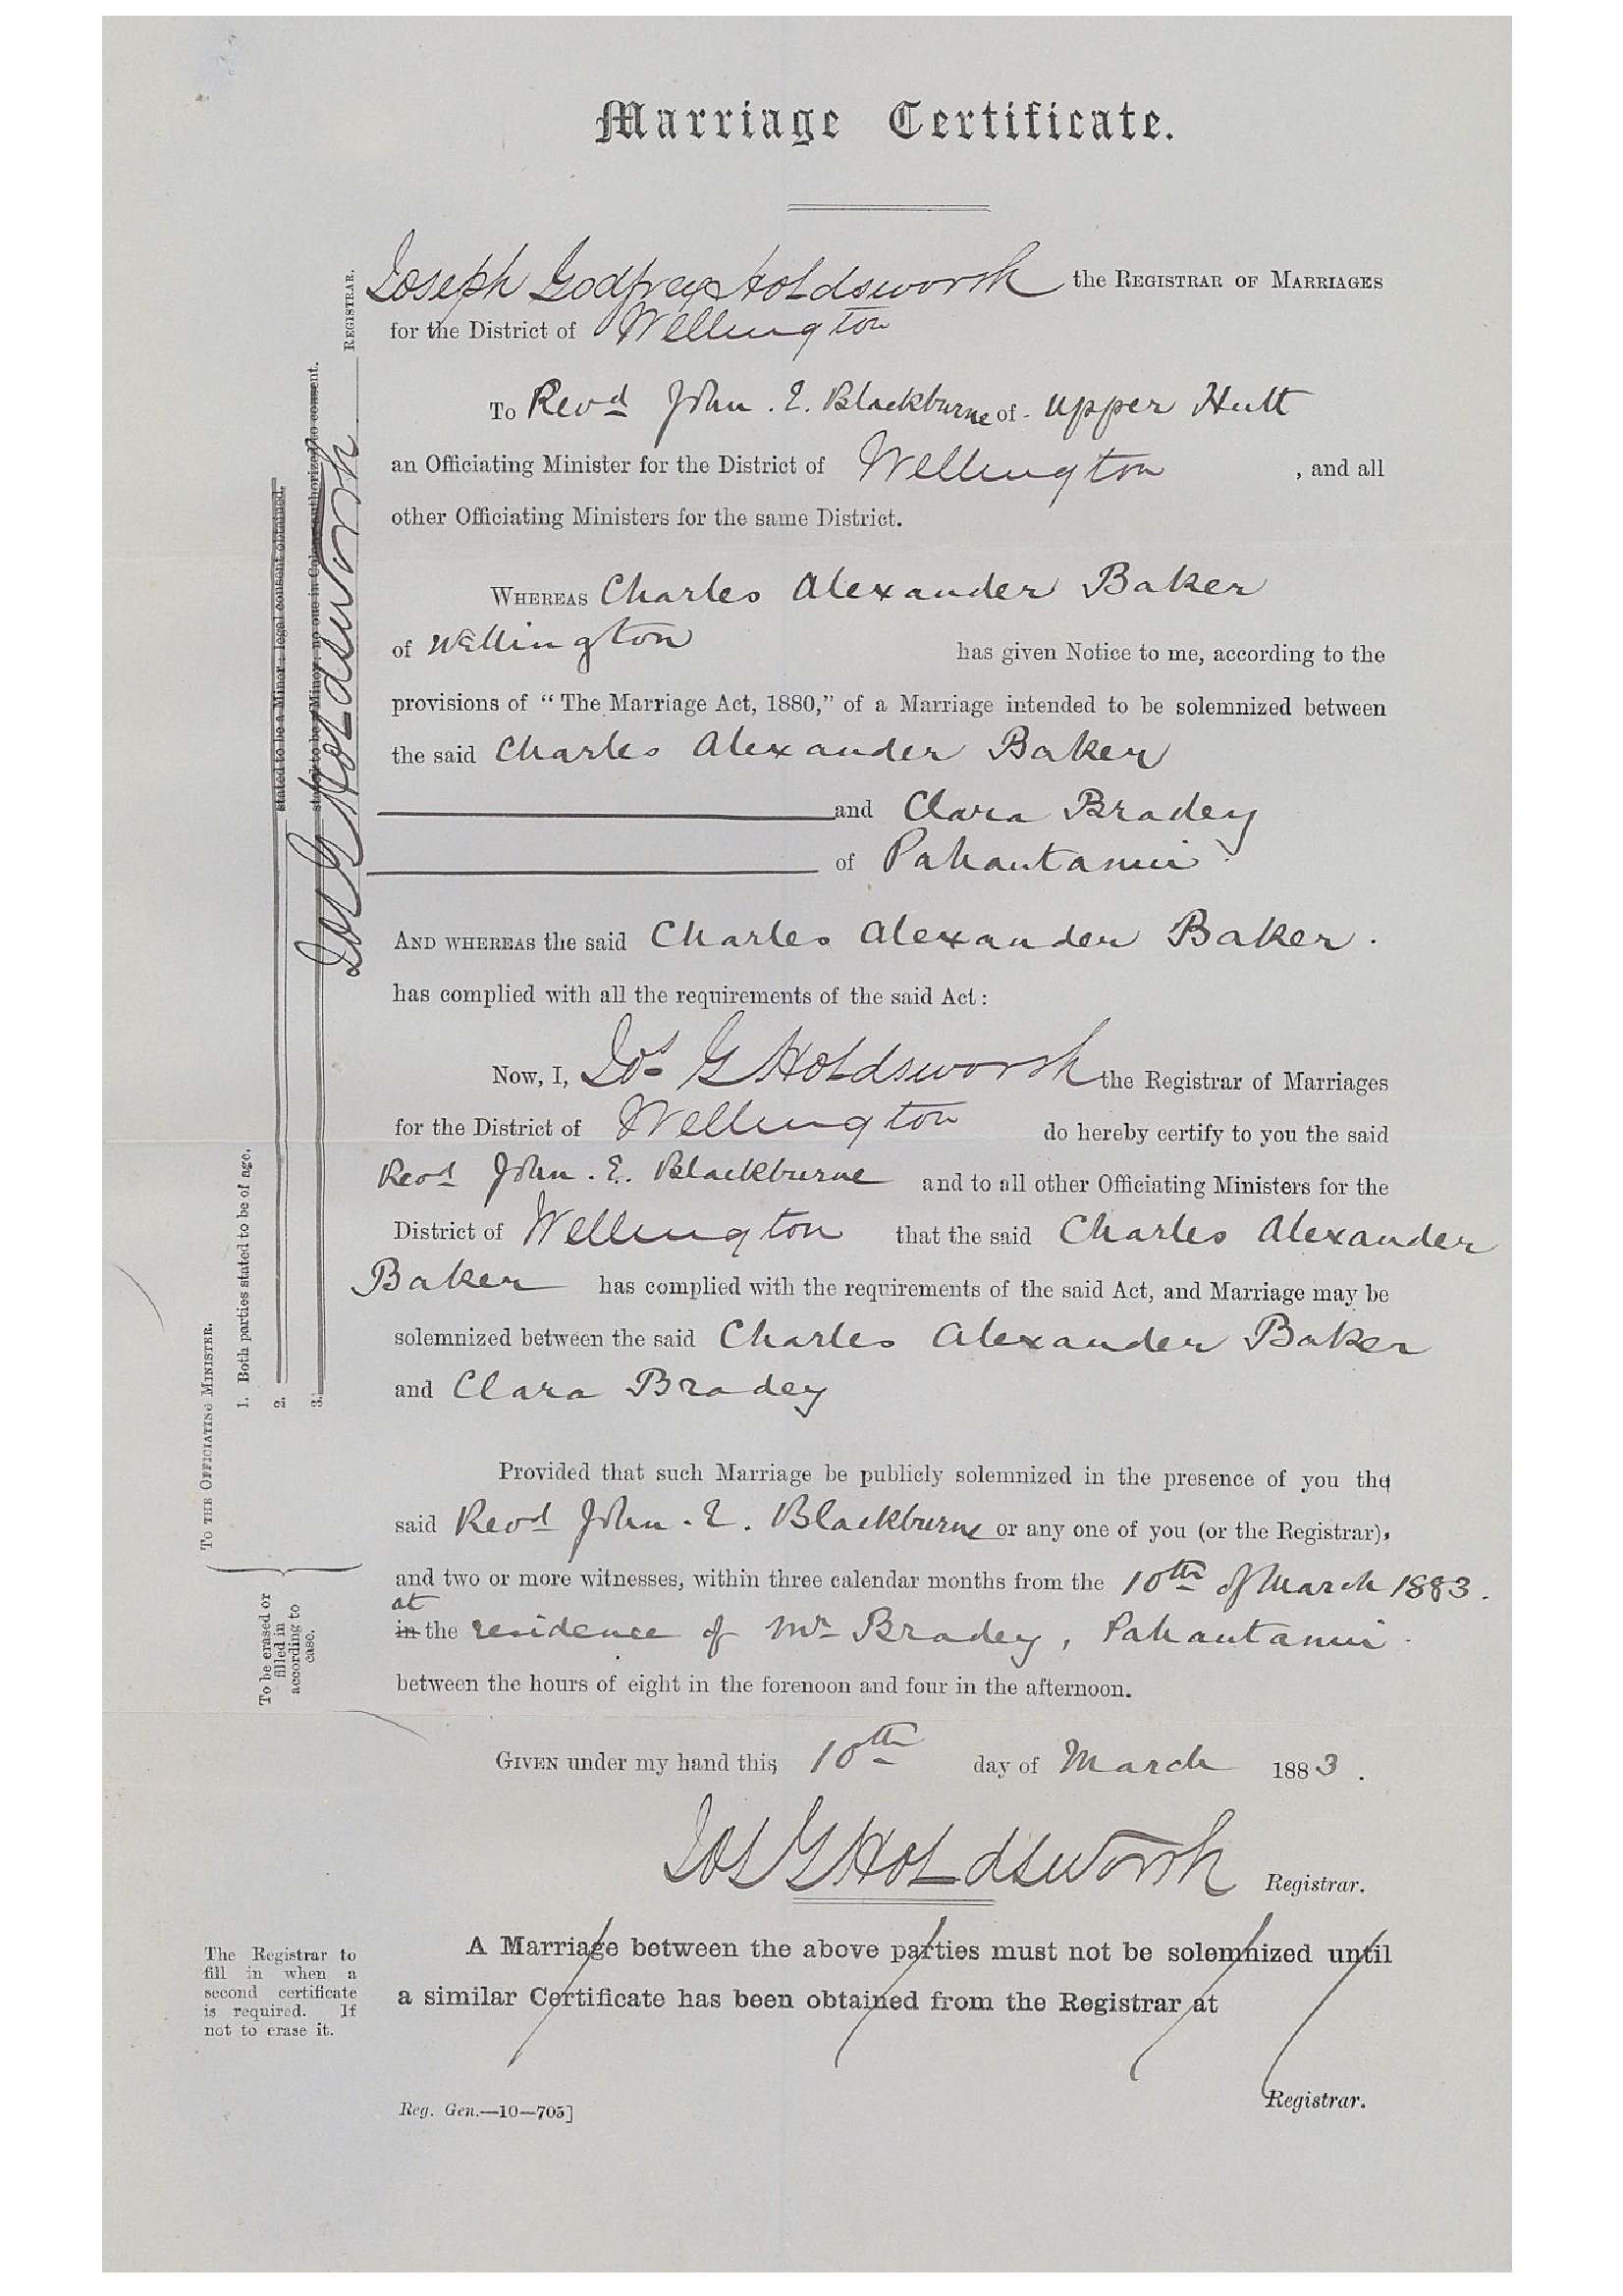 Marriage Certificate.
Joseph Godfrey Holdsworth the REGISTRAR OF MARRIAGES
for the District of Wellington
To Revd John . E. Blackburne of - Upper Hutt
an Officiating Minister for the District of Wellington , and all
other Officiating Ministers for the same District.
WHEREAS Charles Alexander Baker
of Wellington has given Notice to me, according to the
provisions of “The Marriage Act, 1880,” of a Marriage intended to be solemnized between
the said Charles Alexander Baker
and Clara Bradey
of Pahautanui
AND WHEREAS the said Charles Alexander Baker .
has complied with all the requirements of the said Act:
Now, I, Jos G Holdsworth the Registrar of Marriages
for the District of Wellington do hereby certify to you the said
Revd John . E. Blackburne and to all other Officiating Ministers for the
District of Wellington that the said Charles Alexander
Baker has complied with the requirements of the said Act, and Marriage may be
solemnized between the said Charles Alexander Baker
and Clara Bradey
Provided that such Marriage be publicly solemnized in the presence of you the
said Revd John . E. Blackburne or any one of you (or the Registrar),
and two or more witnesses, within three calendar months from the 10th of March 1883 .
at
in the residence of Mr Bradey , Pahautanui .
between the hours of eight in the forenoon and four in the afternoon.
GIVEN under my hand this 10th day of March 1883 .
Jos G Holdsworth Registrar.
A Marriage between the above parties must not be solemnized until
a similar Certificate has been obtained from the Registrar at
Registrar.
Reg. Gen.—10—705]
TO THE OFFICIATING MINISTER.
1. Both parties stated to be of age.
2. stated to be a Minor; legal consent obtained.
3. stated to be a Minor; no one in Colony authorized to consent.
Jos G Holdsworth REGISTRAR.
To be erased or
filled in
according to
case.
The Registrar to
fill in when a
second certificate
is required. If
not to erase it.